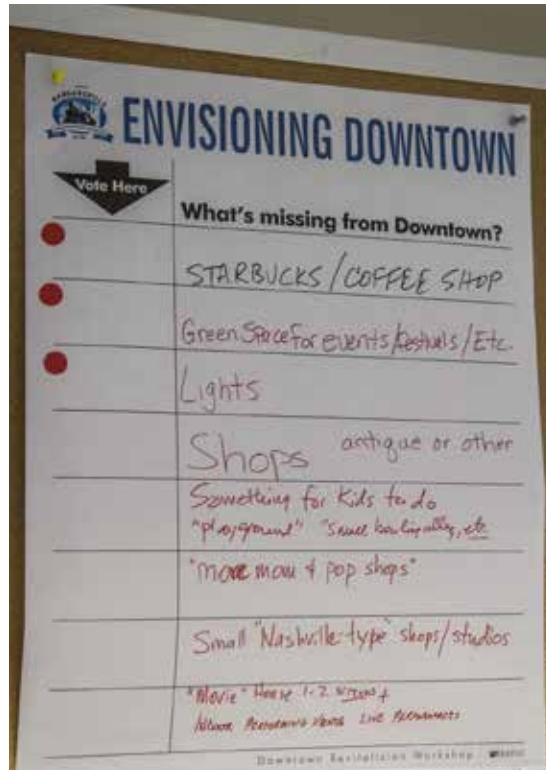 ENVISIONING DOWNTOWN
Vote Here
What's missing from Downtown?
STARBUCKS/COFFEE SHOP
Green Space for events/festivals/Etc.
Lights
Shops antique or other
Something for Kids to do
"playground" "small bowling alley, etc
"more mom & pop shops"
Small "Nashville type" shops/studios
"Movie" House 1-2 screens +
Live
Downtown Revitalization Workshop